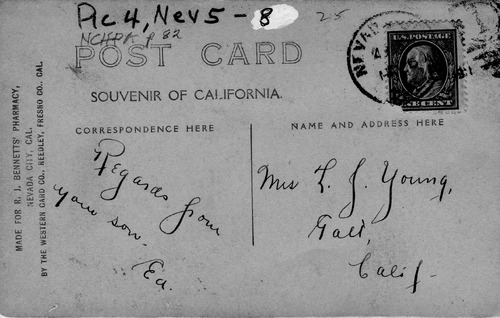 Pic 4, Nev 5 - 8
25
NCHPA p 82
POST CARD
NEVA
U.S. POSTAGE
ONE CENT
SOUVENIR OF CALIFORNIA.
CORRESPONDENCE HERE
NAME AND ADDRESS HERE
MADE FOR R. J. BENNETTS' PHARMACY,
NEVADA CITY, CAL.
BY THE WESTERN CARD CO., REEDLEY, FRESNO CO., CAL.
Regards from
your son.
Ed.
Mrs L. J. Young,
Galt,
Calif.